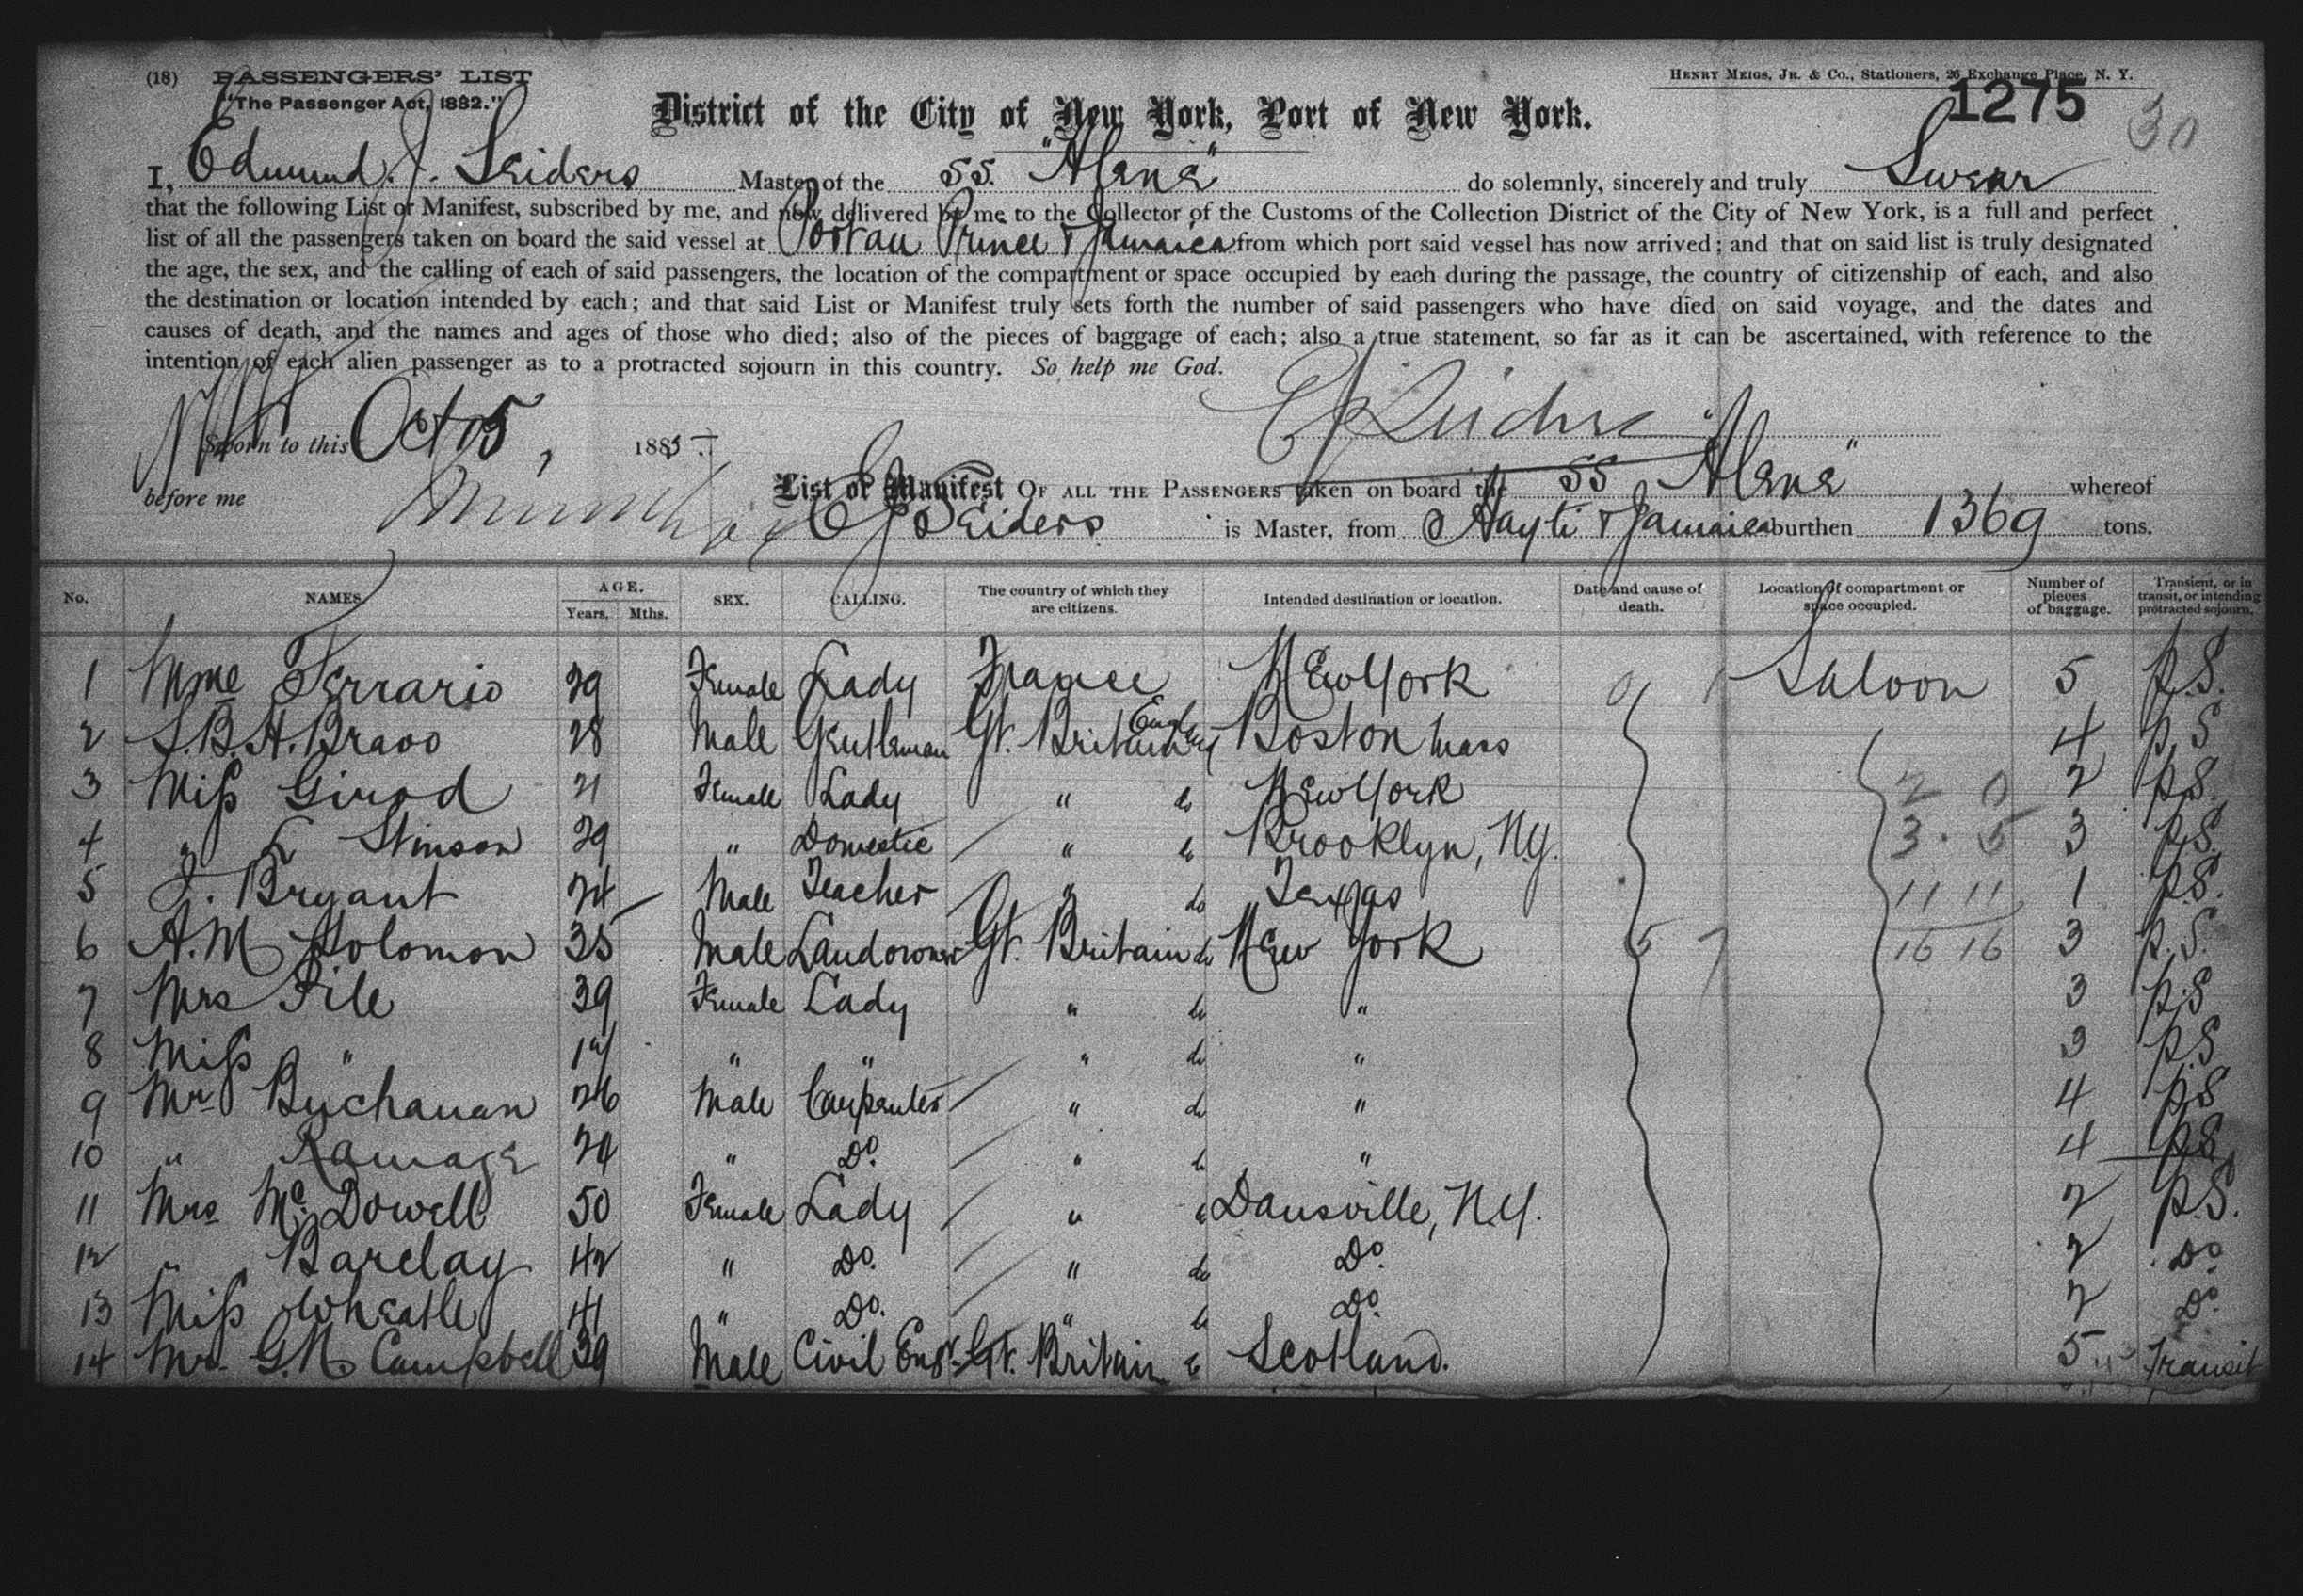 (18) PASSENGERS' LIST HENRY MEIGS, JR. & CO., Stationers, 26 Exchange Place, N. Y.
"The Passenger Act, 1882." 1275 30
District of the City of New York, Port of New York.
I, Edmund J. Seiders Master of the SS. "Alene" do solemnly, sincerely and truly Swear
that the following List or Manifest, subscribed by me, and now delivered by me to the Collector of the Customs of the Collection District of the City of New York, is a full and perfect
list of all the passengers taken on board the said vessel at Port au Prince & Jamaica from which port said vessel has now arrived; and that on said list is truly designated
the age, the sex, and the calling of each of said passengers, the location of the compartment or space occupied by each during the passage, the country of citizenship of each, and also
the destination or location intended by each; and that said List or Manifest truly sets forth the number of said passengers who have died on said voyage, and the dates and
causes of death, and the names and ages of those who died; also of the pieces of baggage of each; also a true statement, so far as it can be ascertained, with reference to the
intention of each alien passenger as to a protracted sojourn in this country. So help me God.
E J Seiders
Sworn to this Oct 5, 1885
before me
List or Manifest OF ALL THE PASSENGERS taken on board the SS "Alene" whereof
E J Seiders is Master, from Hayti & Jamaica burthen 1369 tons.
No. NAMES AGE. Years. Mths. SEX. CALLING. The country of which they are citizens. Intended destination or location. Date and cause of death. Location of compartment or space occupied. Number of pieces of baggage. Transient, or in transit, or intending protracted sojourn.
1 Mme Ferrario 29 Female Lady France New York Saloon 5 P.S.
2 S.B.A. Bravo 28 Male Gentleman Gt. Britain Boston Mass 4 P.S
3 Miss Girod 21 Female Lady " do New York 2 P.S.
4 " L Stinson 29 " Domestic " do Brooklyn, N.Y. 3 P.S.
5 J. Bryant 24 Male Teacher " do Texas 1 P.S.
6 A.M Solomon 35 Male Landowner Gt. Britain do New York 3 P.S.
7 Mrs Pile 39 Female Lady " do " 3 P.S
8 Miss " 17 " " " do " 3 P.S
9 Mr Buchanan 26 Male Carpenter " do " 4 P.S
10 " Ramage 24 " Do. " do " 4 P.S.
11 Mrs McDowell 50 Female Lady " do Dansville, N.Y. 2 P.S.
12 " Barclay 42 " Do. " do Do. 2 Do
13 Miss Wheatle 41 " Do. " do Do. 2 Do.
14 Mr G.N. Campbell 39 Male Civil Engr. Gt. Britain do Scotland. 5 Transit